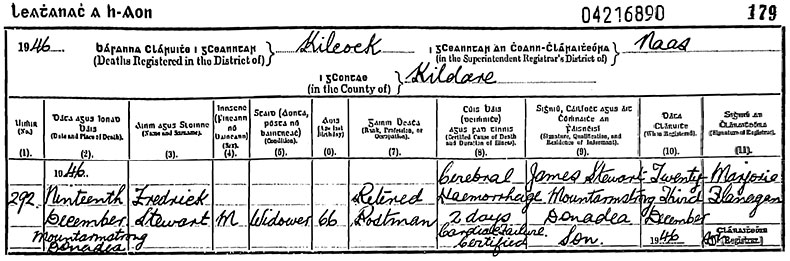 Leaṫanaċ a h-Aon 04216890 179
1946. Báranna Cláruiṫe i gCeanntar Kilcock i gCeanntar an Ċeann-Ċláraiṫeóra Naas
(Deaths Registered in the District of) (in the Superintendent Registrar's District of)
i gConntae Kildare
(in the County of)
Uimhir (No.) (1).
Dáta agus Ionad Báis (Date and Place of Death). (2).
Ainm agus Sloinne (Name and Surname). (3).
Inscne (Fireann nó Baineann) (Sex). (4).
Staid (Aonta, pósta nó baintreaċ) (Condition). (5).
Aois (Age last Birthday) (6).
Gairm Beaṫa (Rank, Profession, or Occupation). (7).
Cúis Báis (Deiṁniġṫe) agus Fad Tinnis (Certified Cause of Death and Duration of Illness). (8).
(Signature, Qualification, and Residence of Informant). (9).
Dáta Cláruiṫe (When Registered). (10).
(Signature of Registrar). (11).
292
1946.
Ninteenth
December
Mountarmstrong
Donadea
Fredrick
Stewart
M
Widower
66
Retired
Postman
Cerebral
Haemorrhage
2 days
Cardiac Failure.
Certified
James Stewart
Mountarmstrong
Donadea
Son.
Twenty
Third
December
1946
Marjorie
Flanagan
Cláraiṫeóir
(Registrar).